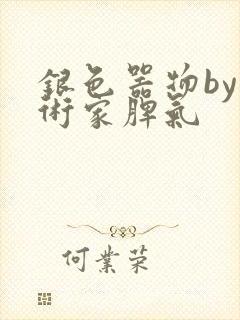 銀色器物by
術家脾氣
何業荣